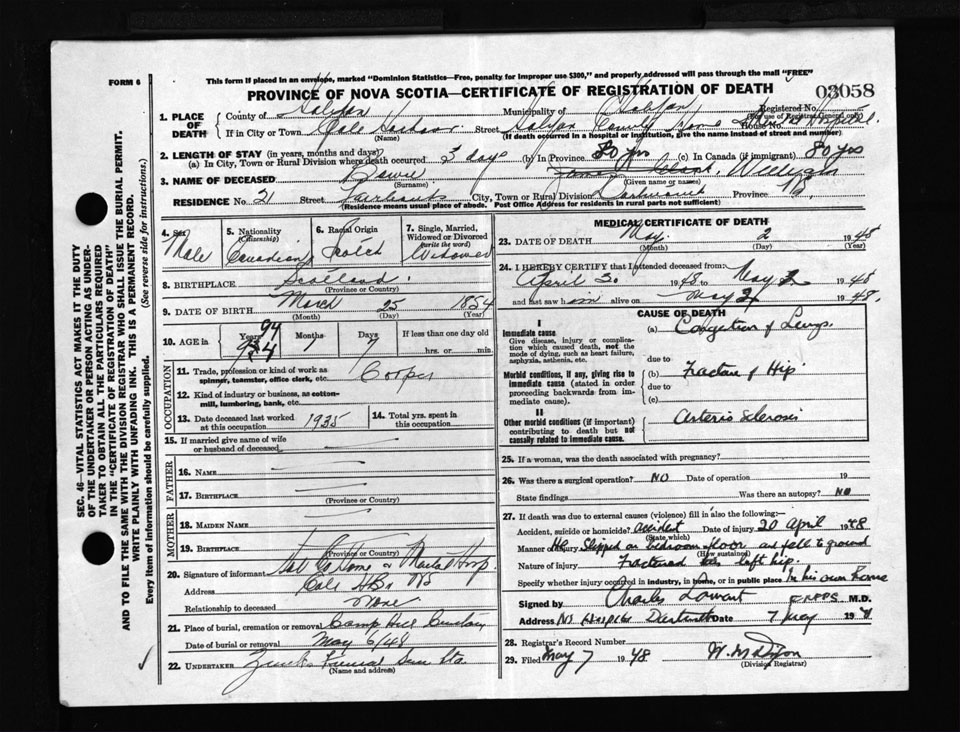 FORM 6
This form if placed in an envelope, marked "Dominion Statistics—Free, penalty for improper use $300," and properly addressed will pass through the mail "FREE"
PROVINCE OF NOVA SCOTIA—CERTIFICATE OF REGISTRATION OF DEATH
03058
1. PLACE OF DEATH { County of Halifax Municipality of Halifax Registered No.
(For use of Registrar General only)
If in City or Town Cole Harbour Street Halifax County Home House No.
(Name) (If death occurred in a hospital or institution, give the name instead of street and number)
2. LENGTH OF STAY (in years, months and days)
(a) In City, Town or Rural Division where death occurred 3 days (b) In Province 80 yrs (c) In Canada (if immigrant) 80 yrs
3. NAME OF DECEASED Bowie James
(Surname) (Given name or names)
RESIDENCE No. 21 Street Fairbanks City, Town or Rural Division Dartmouth Province NS
(Residence means usual place of abode. Post Office Address for residents in rural parts not sufficient)
4. Sex Male
5. Nationality (Citizenship) Canadian
6. Racial Origin Scotch
7. Single, Married, Widowed or Divorced (write the word) Widower
8. BIRTHPLACE Scotland
(Province or Country)
9. DATE OF BIRTH March 25 1854
(Month) (Day) (Year)
10. AGE in { Years 94 Months 1 Days 7 If less than one day old
hrs. or min.
OCCUPATION
11. Trade, profession or kind of work as spinner, teamster, office clerk, etc. Cooper
12. Kind of industry or business, as cotton-mill, lumbering, bank, etc.
13. Date deceased last worked at this occupation 1935
14. Total yrs. spent in this occupation
15. If married give name of wife or husband of deceased
FATHER
16. NAME
17. BIRTHPLACE
(Province or Country)
MOTHER
18. MAIDEN NAME
19. BIRTHPLACE
(Province or Country)
20. Signature of informant
Address Cole Hbr NS
Relationship to deceased None
21. Place of burial, cremation or removal Camp Hill
Date of burial or removal May 6/48
22. UNDERTAKER Funeral
(Name and address)
MEDICAL CERTIFICATE OF DEATH
23. DATE OF DEATH May 2 1948
(Month) (Day) (Year)
24. I HEREBY CERTIFY that I attended deceased from:
April 30 1948 to May 2 1948
and last saw him alive on May 2 1948.
CAUSE OF DEATH
I
Immediate cause
Give disease, injury or complication which caused death, not the mode of dying, such as heart failure, asphyxia, asthenia, etc.
(a) Congestion of Lungs
due to
Morbid conditions, if any, giving rise to immediate cause (stated in order proceeding backwards from immediate cause).
(b) Fracture of Hip
due to
(c)
II
Other morbid conditions (if important) contributing to death but not causally related to immediate cause.
Arterio Sclerosis
25. If a woman, was the death associated with pregnancy?
26. Was there a surgical operation? NO Date of operation 19
State findings Was there an autopsy? NO
27. If death was due to external causes (violence) fill in also the following:
Accident, suicide or homicide? Accident Date of injury 20 April 1948
(State which)
Manner of injury He slipped on bedroom floor and fell to ground
(How sustained)
Nature of injury Fractured his left hip.
Specify whether injury occurred in industry, in home, or in public place In his own home
Signed by Charles M.D.
Address NS Hospital Dartmouth 7 May 19
28. Registrar's Record Number
29. Filed May 7 1948
(Division Registrar)
SEC. 46—VITAL STATISTICS ACT MAKES IT THE DUTY
OF THE UNDERTAKER OR PERSON ACTING AS UNDER-
TAKER TO OBTAIN ALL THE PARTICULARS REQUIRED
IN THE "CERTIFICATE OF REGISTRATION OF DEATH"
AND TO FILE THE SAME WITH THE DIVISION REGISTRAR WHO SHALL ISSUE THE BURIAL PERMIT.
WRITE PLAINLY WITH UNFADING INK. THIS IS A PERMANENT RECORD.
Every item of information should be carefully supplied. (See reverse side for instructions.)